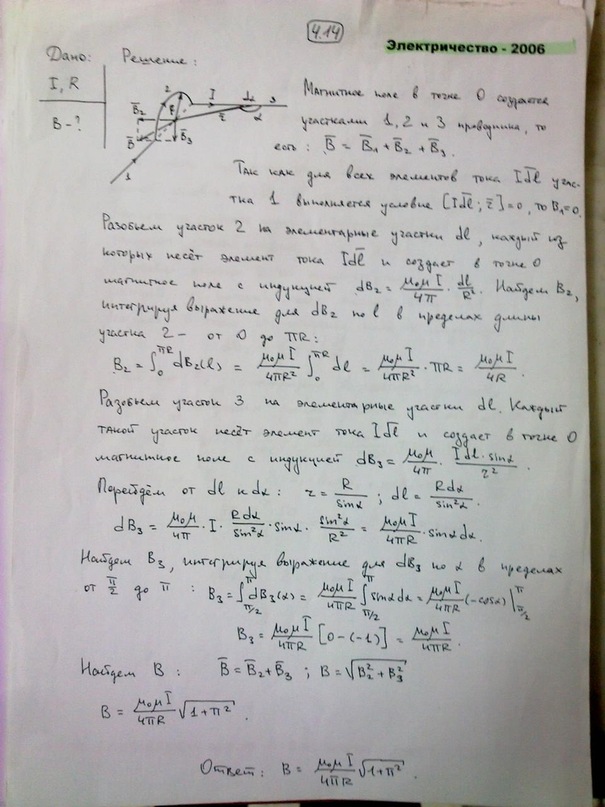 4.14
Электричество - 2006
Дано: Решение:
I, R
B - ?
2 I dα 3
B̄₂ R r̄ α
B̄ B̄₃
1
Магнитное поле в точке O создается
участками 1, 2 и 3 проводника, то
есть: B̄ = B̄₁ + B̄₂ + B̄₃.
Так как для всех элементов тока Idl̄ учас-
тка 1 выполняется условие [Idl̄; r̄] = 0, то B₁ = 0.
Разобьем участок 2 на элементарные участки dl, каждый из
которых несёт элемент тока Idl̄ и создает в точке O
магнитное поле с индукцией dB₂ = μ₀μI/4π · dl/R². Найдем B₂,
интегрируя выражение для dB₂ по l в пределах длины
участка 2 – от 0 до πR:
B₂ = ∫₀^πR dB₂(l) = μ₀μI/4πR² ∫₀^πR dl = μ₀μI/4πR² · πR = μ₀μI/4R.
Разобьем участок 3 на элементарные участки dl. Каждый
такой участок несёт элемент тока Idl̄ и создает в точке O
магнитное поле с индукцией dB₃ = μ₀μ/4π · Idl·sinα/r².
Перейдём от dl к dα: r = R/sinα; dl = Rdα/sin²α.
dB₃ = μ₀μ/4π · I · Rdα/sin²α · sinα · sin²α/R² = μ₀μI/4πR sinα dα.
Найдем B₃, интегрируя выражение для dB₃ по α в пределах
от π/2 до π: B₃ = ∫π/2^π dB₃(α) = μ₀μI/4πR ∫π/2^π sinα dα = μ₀μI/4πR (-cosα)|π/2^π
B₃ = μ₀μI/4πR [0-(-1)] = μ₀μI/4πR.
Найдем B: B̄ = B̄₂ + B̄₃; B = √(B₂² + B₃²)
B = μ₀μI/4πR √(1+π²).
Ответ: B = μ₀μI/4πR √(1+π²).